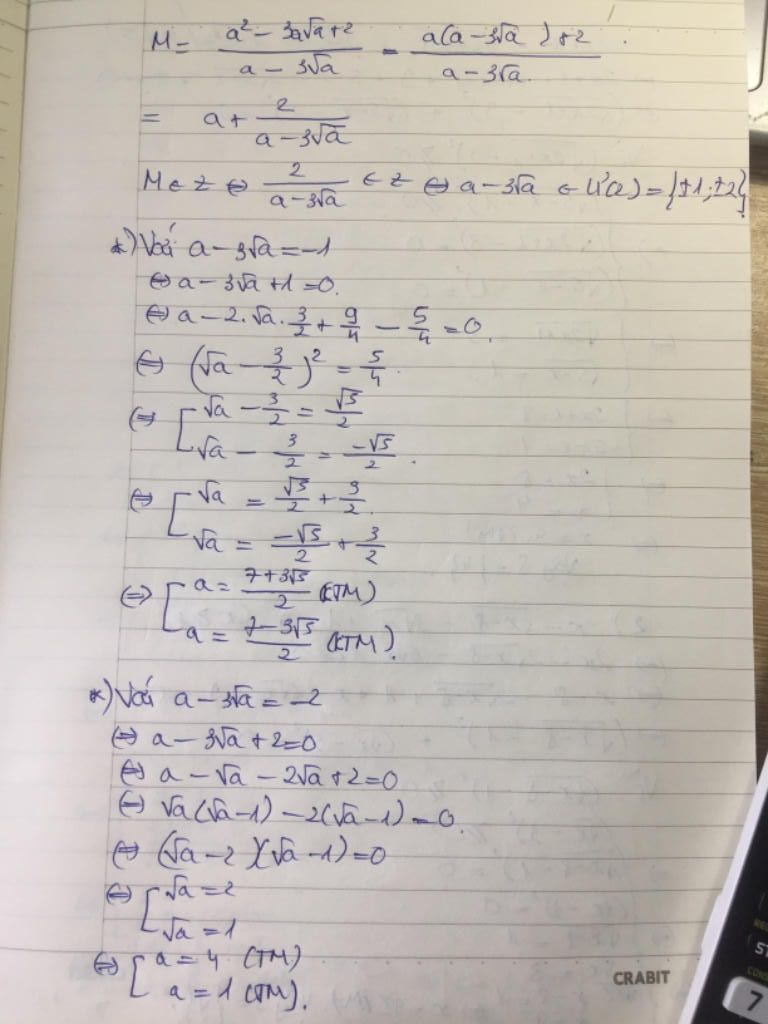 M = \frac{a² - 3a√a + 2}{a - 3√a} = \frac{a(a - 3√a) + 2}{a - 3√a}.
= a + \frac{2}{a - 3√a}
M ∈ Z ⇔ \frac{2}{a - 3√a} ∈ Z ⇔ a - 3√a ∈ Ư(2) = {±1; ±2}
*) Với a - 3√a = -1
⇔ a - 3√a + 1 = 0.
⇔ a - 2.√a.\frac{3}{2} + \frac{9}{4} - \frac{5}{4} = 0.
⇔ (√a - \frac{3}{2})² = \frac{5}{4}.
⇔ [ √a - \frac{3}{2} = \frac{√5}{2}
√a - \frac{3}{2} = \frac{-√5}{2}.
⇔ [ √a = \frac{√5}{2} + \frac{3}{2}
√a = \frac{-√5}{2} + \frac{3}{2}
⇔ [ a = \frac{7 + 3√5}{2} (KTM)
a = \frac{7 - 3√5}{2} (KTM).
*) Với a - 3√a = -2
⇔ a - 3√a + 2 = 0
⇔ a - √a - 2√a + 2 = 0
⇔ √a(√a - 1) - 2(√a - 1) = 0.
⇔ (√a - 2)(√a - 1) = 0
⇔ [ √a = 2
√a = 1
⇔ [ a = 4 (TM)
a = 1 (TM).
CRABIT
7